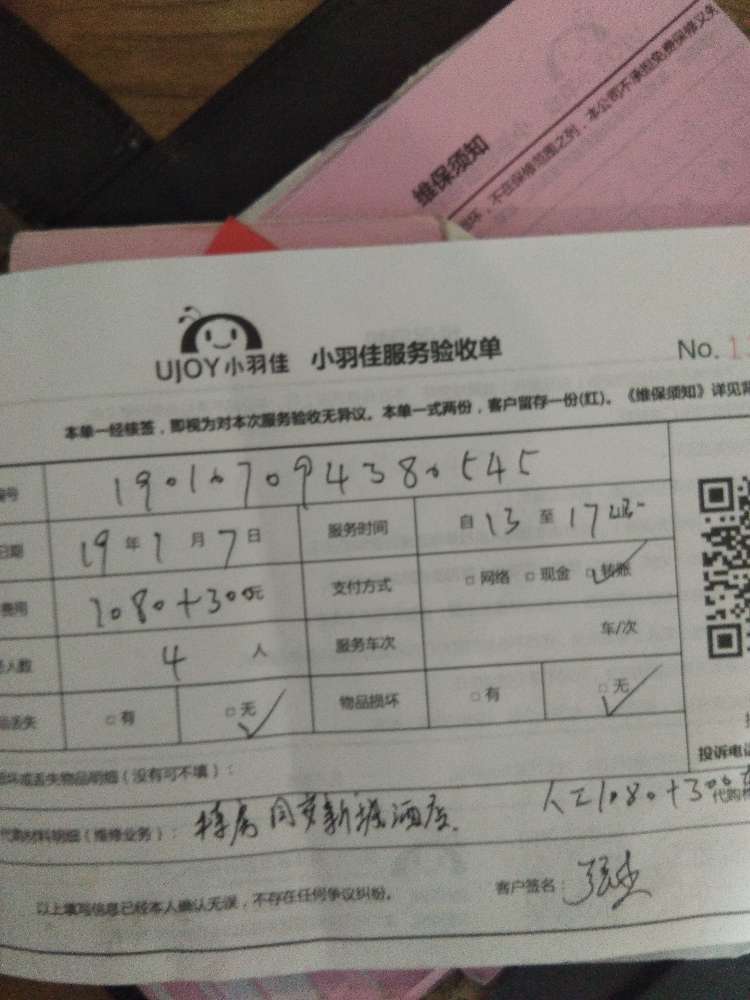 维保须知
坏，不在保修范围之列，本公司不承担免费保修义务
UJOY小羽佳 小羽佳服务验收单 No. 1
本单一经核签，即视为对本次服务验收无异议。本单一式两份，客户留存一份(红)。《维保须知》详见背
编号 190107094380545
日期 19年1月7日 服务时间 自13至17
费用 1080+300元 支付方式 □网络 □现金 □转账
人数 4人 服务车次 车/次
品丢失 □有 □无 物品损坏 □有 □无
损坏或丢失物品明细（没有可不填）： 投诉电话
人工1080+300元
代购材料明细（维修业务）： 酒店 代购材
以上填写信息已经本人确认无误，不存在任何争议纠纷。 客户签名：